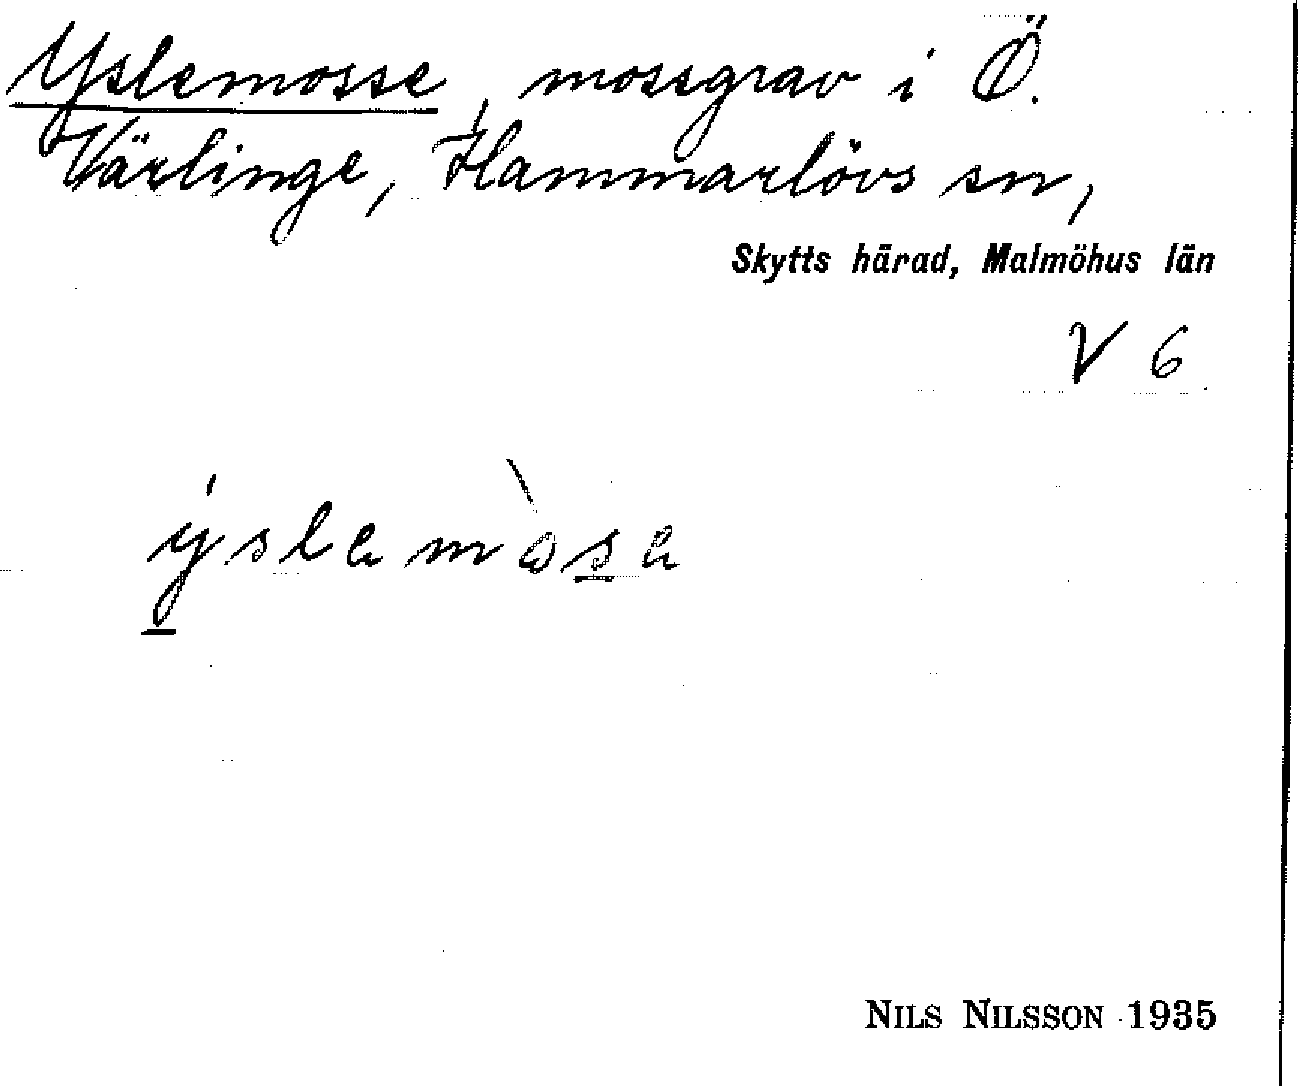 Yslemosse, mossgrav i Ö.
Värlinge, Hammarlövs sn,
Skytts härad, Malmöhus län
V 6
ýslemòse
NILS NILSSON 1935